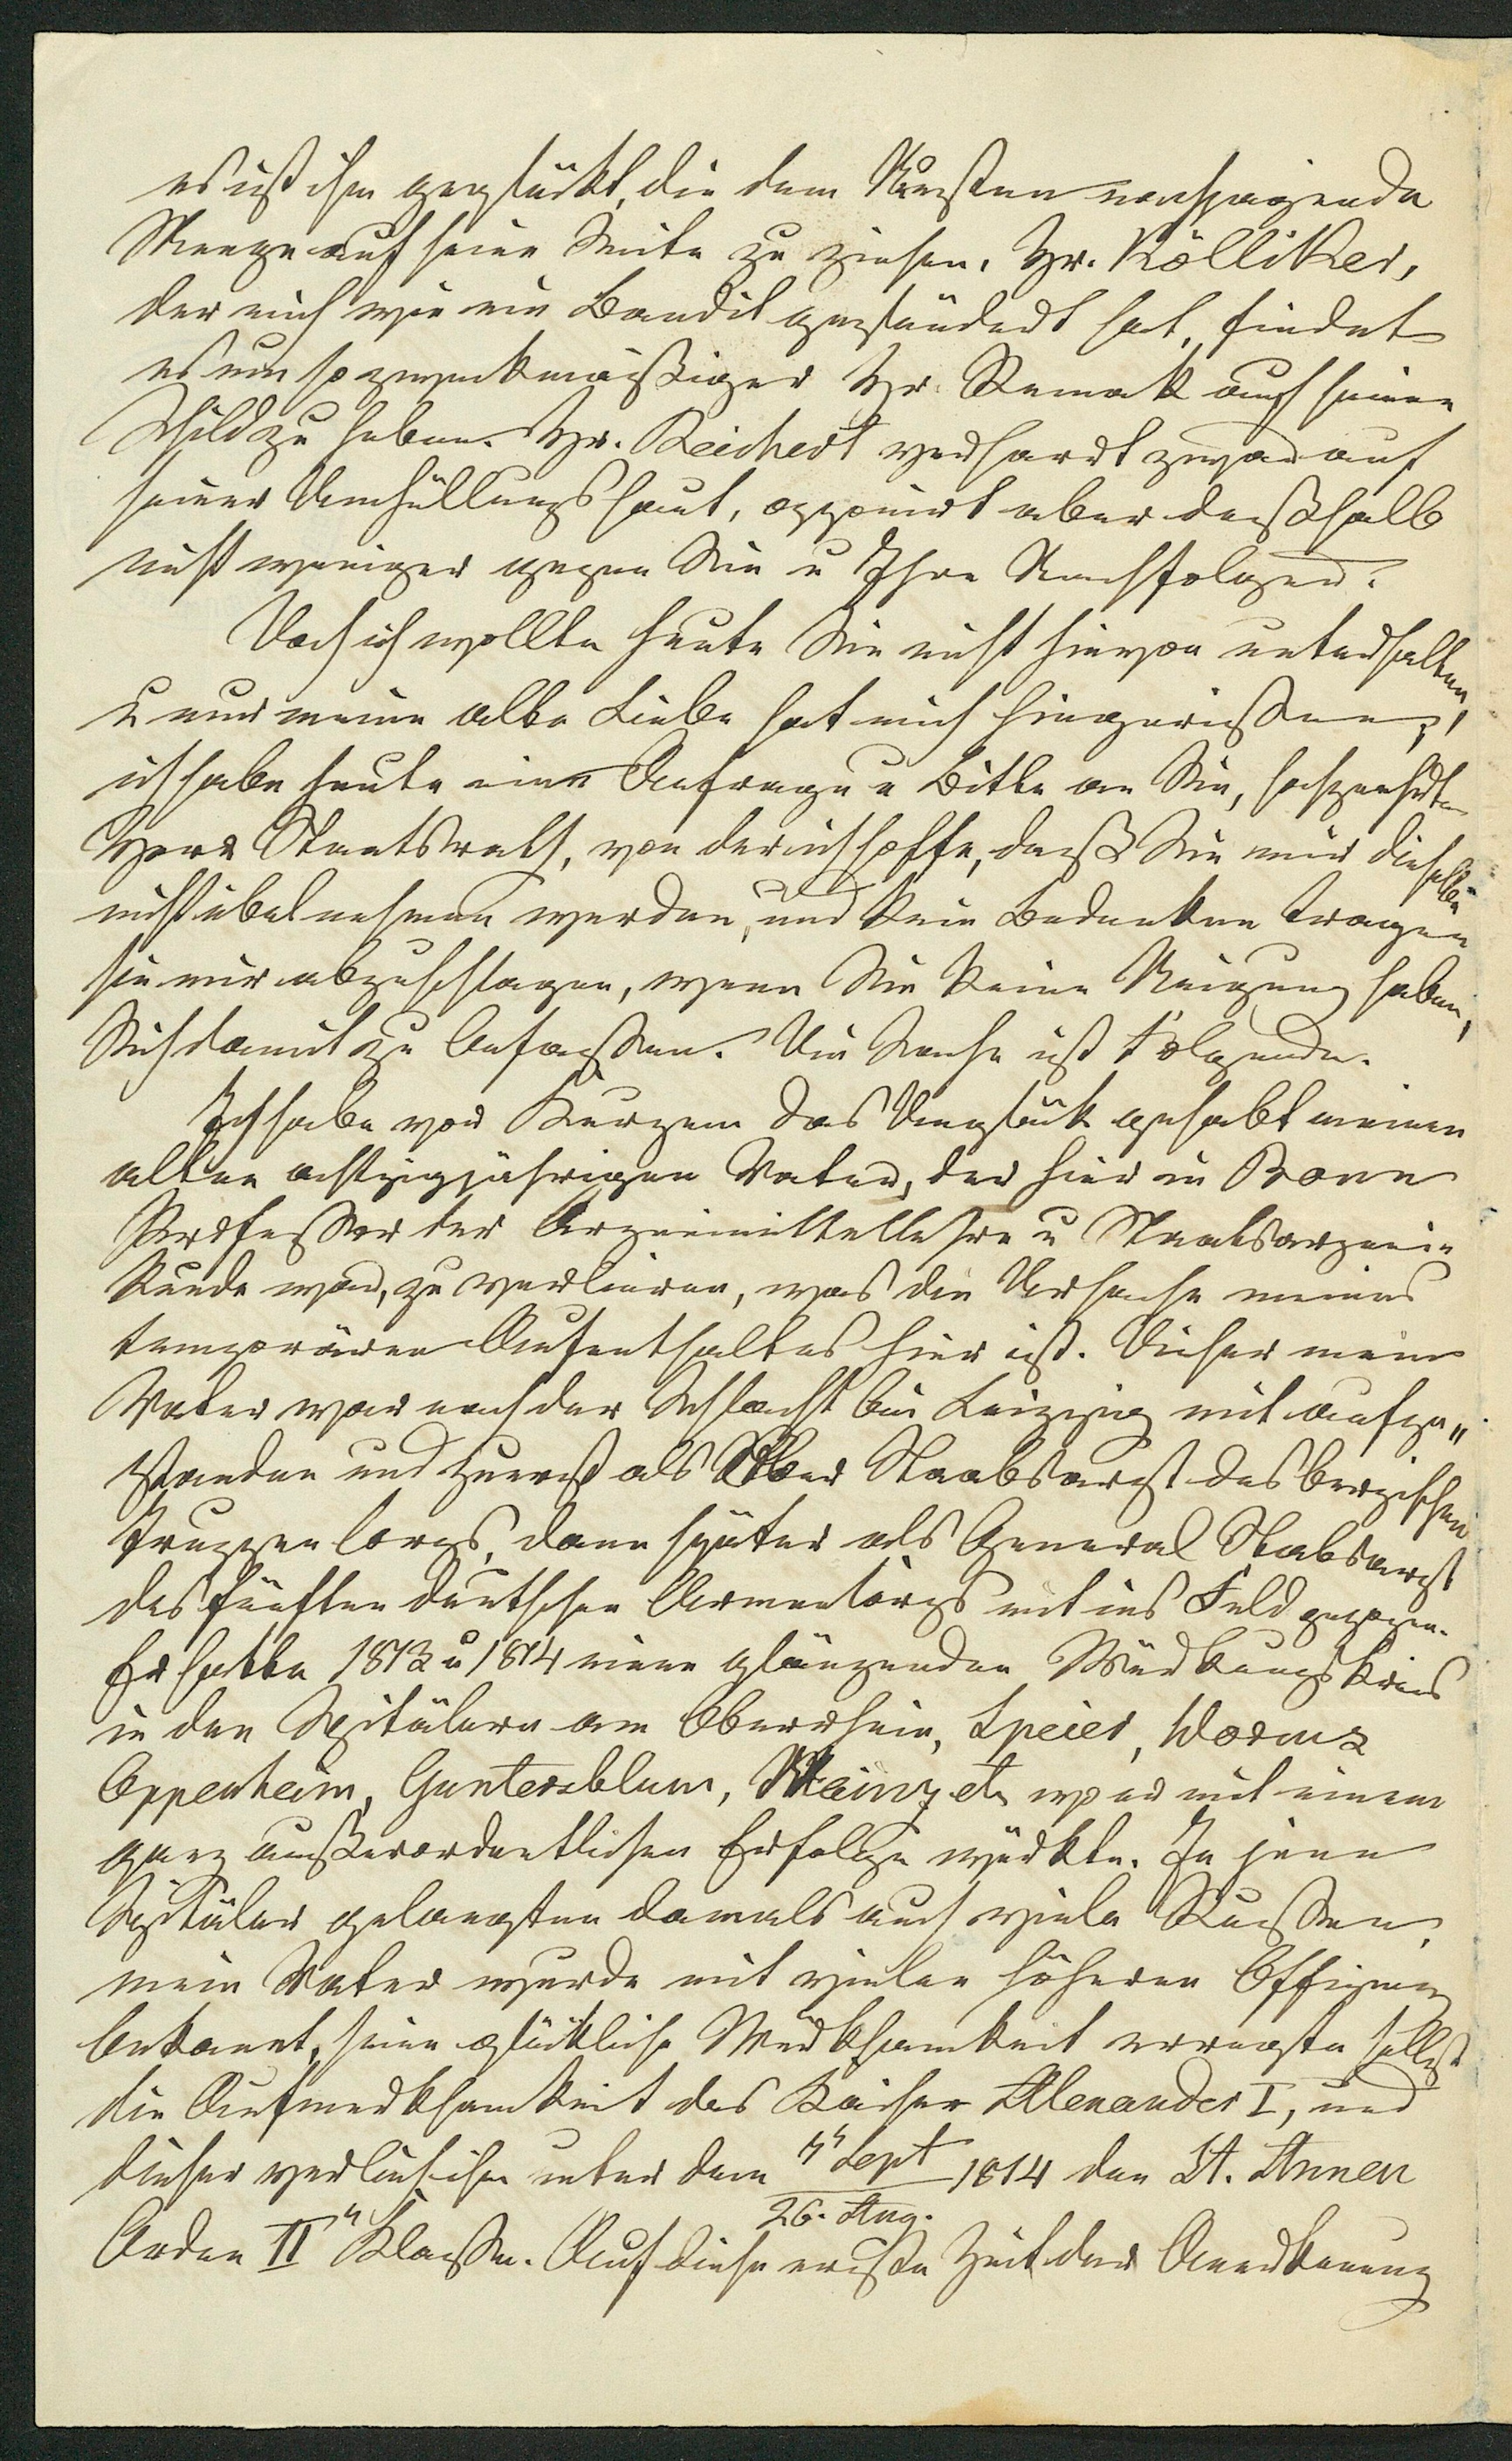 es ist ihm geglückt, die dem Neusten nachjagende
Menge auf seine Seite zu ziehen. Hr. Kölliker,
der mich wie ein Bandit geplündert hat, findet
es um so zweckmäßiger Hr. Remak auf seinen
Schild zu heben. Hr. Reichert verharrt zwar auf
seiner Umhüllungshaut, opponirt aber deßhalb
nicht weniger gegen Sie u Ihre Nachfolger.
Doch ich wollte heute Sie nicht hievon unterhalten,
u nur meine alte Liebe hat mich hingerissen;
ich habe heute eine Anfrage u Bitte an Sie, hochverehrter
Herr Staatsrath, von der ich hoffe, daß Sie mir dieselbe
nicht übel nehmen werden, und kein Bedenken tragen
sie mir abzuschlagen, wenn Sie keine Neigung haben,
Sich damit zu befassen. Die Sache ist folgende.
Ich habe vor Kurzem das Unglück gehabt meinen
alten achtzigjährigen Vater, der hier in Bonn
Professor der Arzneimittellehre u Staatsarznei-
kunde war, zu verlieren, was die Ursache meines
temporären Aufenthaltes hier ist. Dieser mein
Vater war nach der Schlacht bei Leipzig mit aufge„
standen und zuerst als Ober Staabsarzt des bergischen
Truppencorps, dann später als General Stabsarzt
des fünften deutschen Armeecorps mit ins Feld gezogen.
Er hatte 1813 u 1814 einen glänzenden Würkungskreis
in den Spitälern am Oberrhein, Speier, Worms
Oppenheim, Guntersblum, Mainz etc wo er mit einem
ganz außerordentlichen Erfolge würkte. In jene
Spitäler gelangten damals auch viele Russen,
mein Vater wurde mit vielen höheren Offizieren
bekannt, seine glückliche Würksamkeit erregte selbst
die Aufmerksamkeit des Kaiser Alexander I, und
dieser verlieh ihm unter dem 7" Sept 1814 den St. Annen
26. Aug.
Orden II" Klasse. Auf diese erste Zeit der Anerkennung